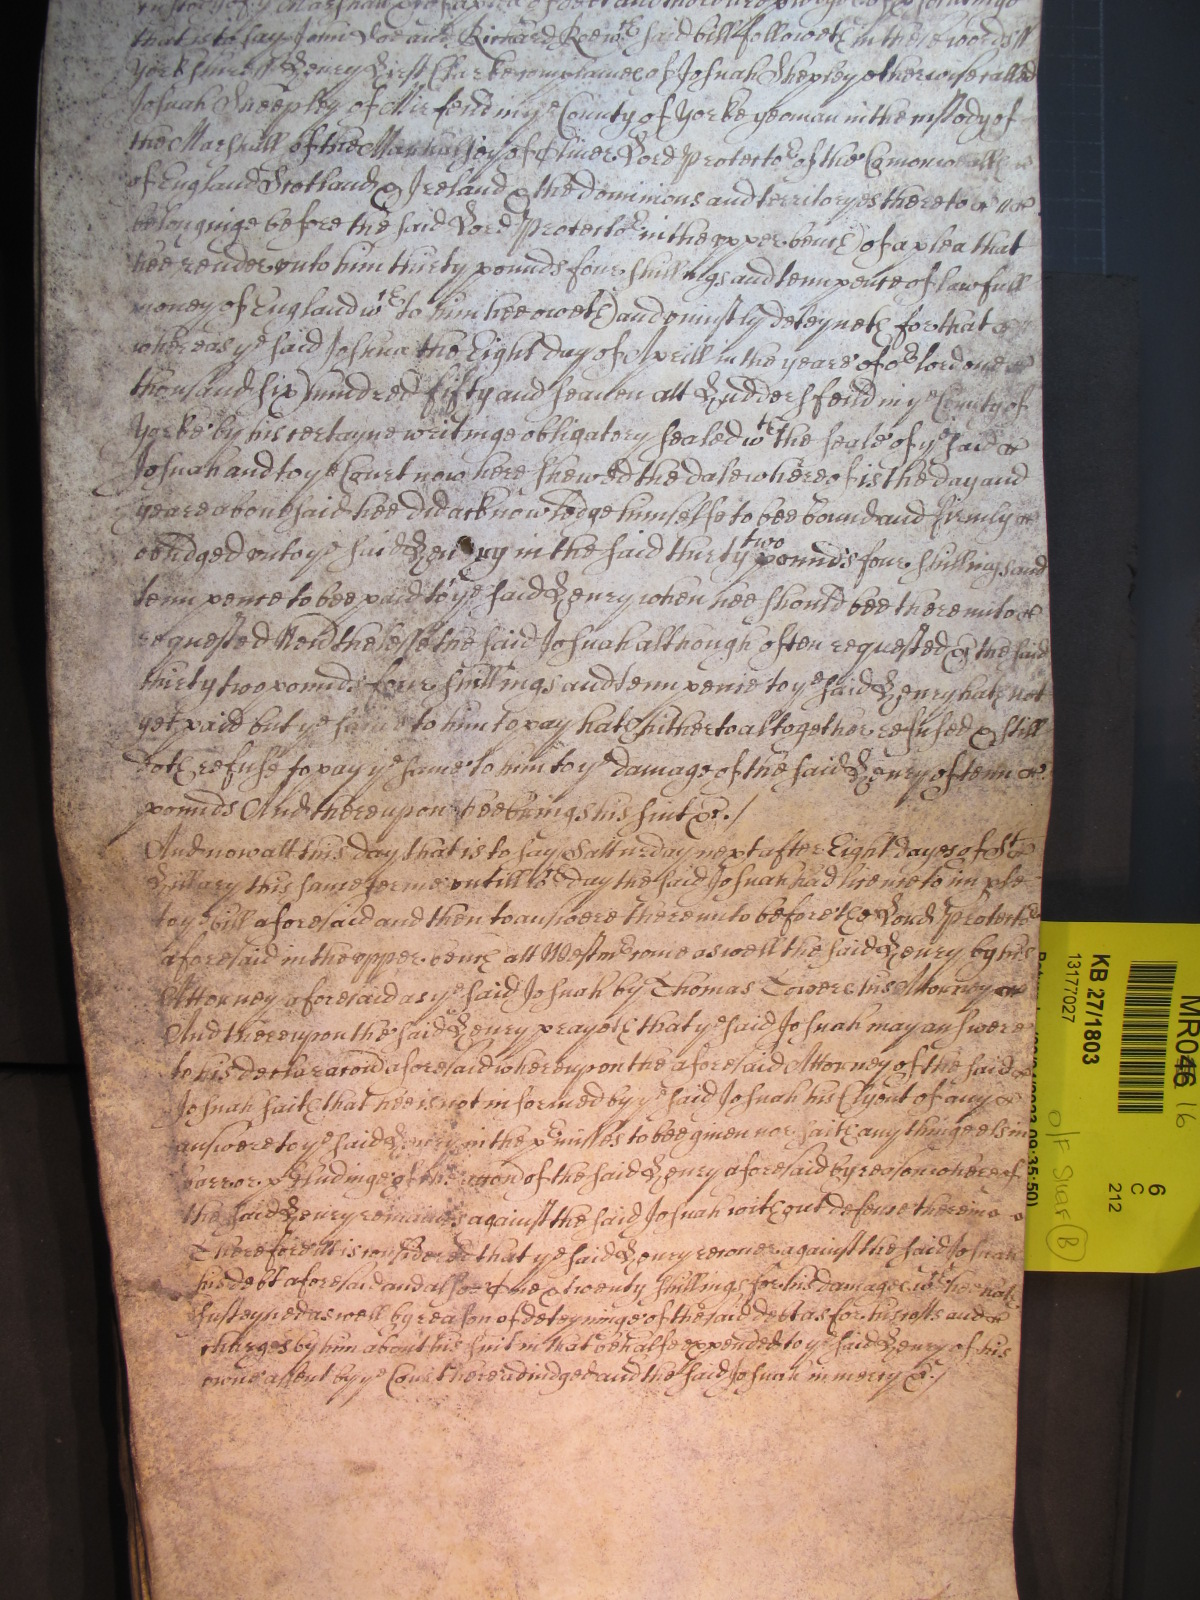 custody of ye Marshall
that is to say John Doe and Richard Roe wch said bill followeth in these words //
Yorkshire ss Henry Hirst Clarke complaines of Josuah Shepley otherwise called
Josuah Sheepley of Mirfeild in ye County of Yorke yeoman in the custody of
the Marshall of the Marshalsey of Oliver Lord Protector of the Comonwealth
of England Scotland & Ireland & the dominions and territoryes thereto
belonginge before the said Lord Protector in the upper bench of a plea that
hee render unto him thirty pounds four shillings and tenn pence of lawfull
money of England wch to him hee oweth and uniustly deteyneth for that
whereas ye said Josuah the Eight day of Aprill in the yeare of or lord one
thousand six hundred fifty and seaven att Huddersfeild in ye County of
Yorke by his certayne writinge obligatory sealed wth the seale of ye said
Josuah and to ye Court now here shewed the date whereof is the day and
yeare abovesaid hee did acknowledge himselfe to bee bound and firmly
oblidged unto ye said Henry in the said thirty two pounds four shillings and
tenn pence to bee paid to ye said Henry when hee should bee thereunto
requested Nevertheless the said Josuah although often requested &c the said
thirty two pounds four shillings and tenn pence to ye said Henry hath not
yet paid but ye same to him to pay hath hitherto altogether refused & still
doth refuse to pay ye same to him to ye damage of the said Henry of tenn
pounds And thereupon hee brings his suit &c./
And now att this day that is to say Satturday next after Eight dayes of St
Hillary this same terme untill wch day the said Josuah had licence to imple
to ye bill aforesaid and then to answere thereunto before the Lord Protector
aforesaid in the upper bench att Westmr come aswell the said Henry by his
Attorney aforesaid as ye said Josuah by Thomas Towers his Attorney
And thereupon the said Henry prayeth that ye said Josuah may answere
to his declaracon aforesaid whereupon the aforesaid Attorney of the said
Josuah saith that hee is not informed by ye said Josuah his Clyent of any
answere to ye said Henry in the pmisses to bee given nor saith any thinge els in
barr or pcludinge of the accon of the said Henry aforesaid by reason whereof
the said Henry remaines against the said Josuah without defence therein
Therefore itt is considered that ye said Henry recover against the said Josuah
his debt aforesaid and alsoe twenty shillings for his damages wch hee hath
susteyned aswell by reason of deteyninge of the said debt as for his costs and
charges by him about his suit in that behalfe expended to ye said Henry of his
owne assent by ye Court here adiudged and the said Josuah in mercy &c./
MR046 16
KB 27/1803
13177027
6
C
212
O/F Shelf B
09:35:50)